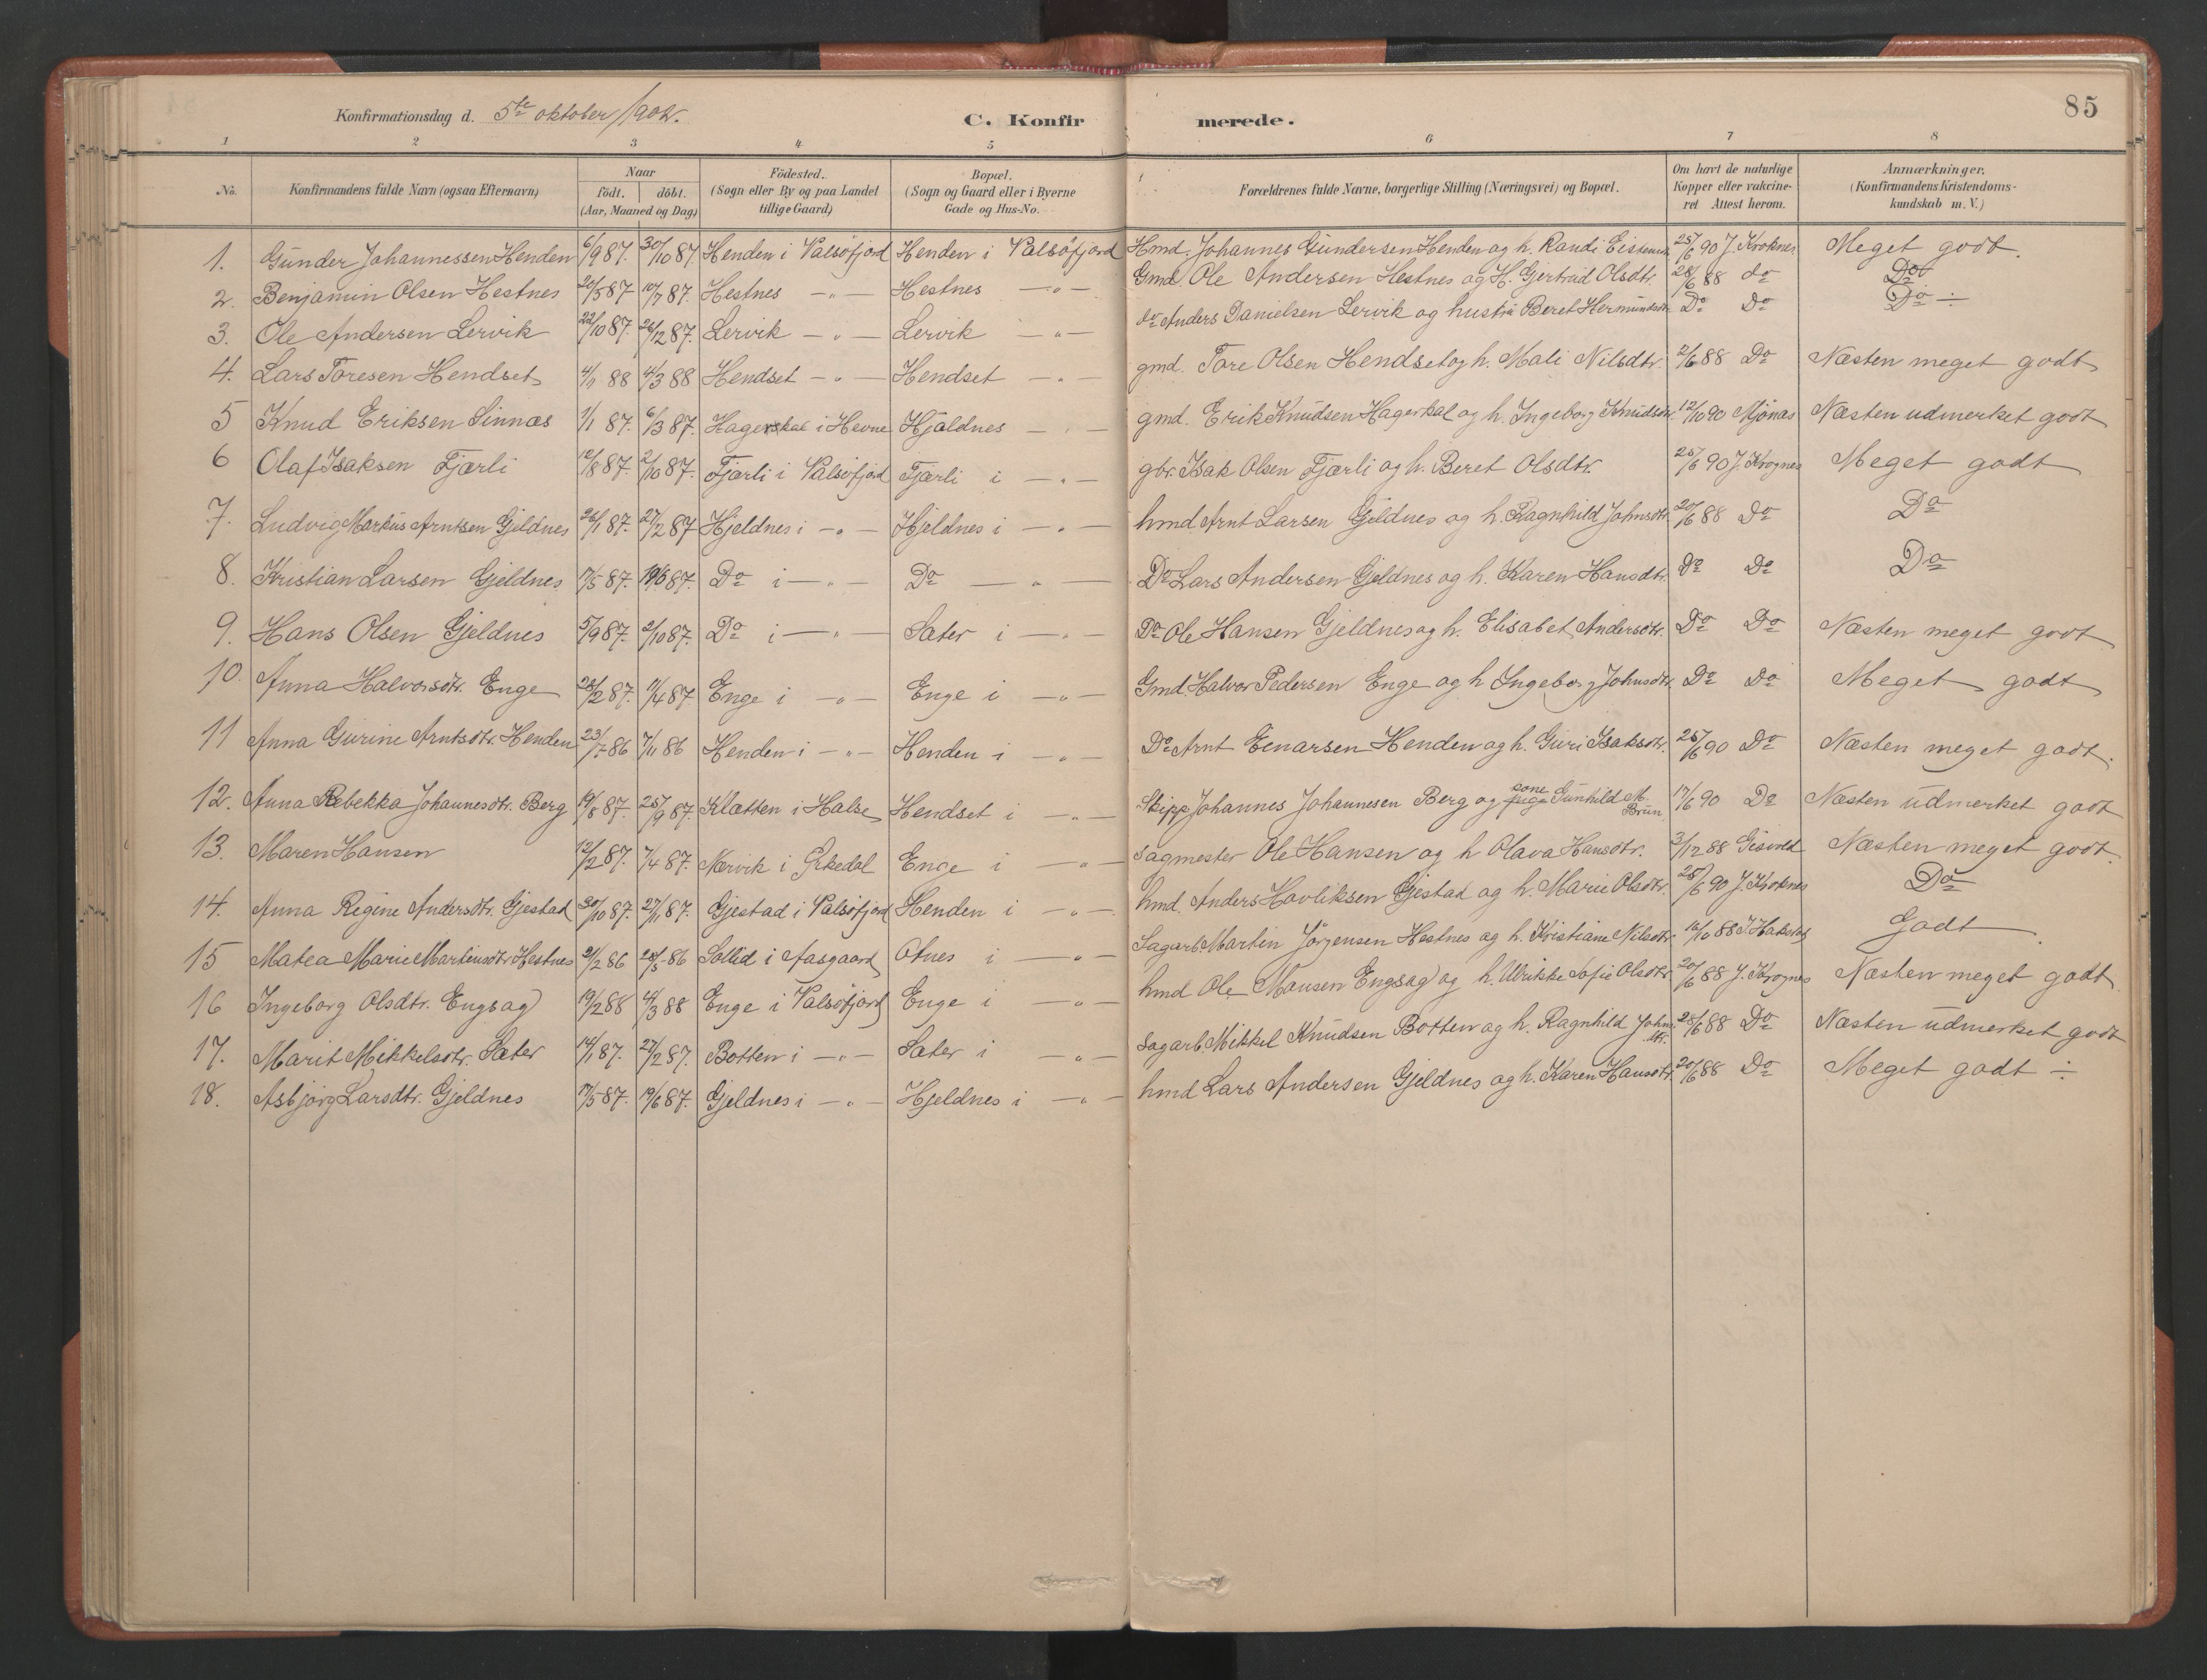 85
Konfirmationsdag d. 5te oktober 1902.
C. Konfirmerede.
1 2 3 4 5 6 7 8
No. Konfirmandens fulde Navn (ogsaa Efternavn) Naar födt. döbt. (Aar, Maaned og Dag) Födested. (Sogn eller By og paa Landet tillige Gaard) Bopæl. (Sogn og Gaard eller i Byerne Gade og Hus-No. Forældrenes fulde Navne, borgerlige Stilling (Næringsvei) og Bopæl. Om havt de naturlige Kopper eller vakcineret Attest herom. Anmærkninger, (Konfirmandens Kristendomskundskab m. V.)
1. Gunder Johannessen Henden 6/9 87. 30/10 87. Henden i Valsöfjord Henden i Valsöfjord Hmd. Johannes Gundersen Henden og h. Randi 25/6 90 J. Kroknes Meget godt.
2. Benjamin Olsen Hestnes 20/5 87 10/7 87. Hestnes — " — Hestnes — " — Gmd. Ole Andersen Hestnes og H. Gertrud Olsdtr. 28/6 88 do Do
3. Ole Andersen Lervik 22/10 87. 26/12 87. Lervik — " — Lervik — " — do Anders Danielsen Lervik og hustru Beret Hermundsdtr. Do Do Do ÷
4. Lars Toresen Hendset 4/1 88 4/3 88 Hendset — " — Hendset — " — gmd. Tore Olsen Hendset og h. Mali Nilsdtr. 2/6 88 Do Næsten meget godt
5 Knud Eriksen Sinnæs 1/1 87. 6/3 87. Hagerskal i Hevne Hjåldnes — " — gmd. Erik Knudsen Hagerkal og h. Ingeborg Knudsdtr. 12/10 90 Mjönæs Næsten udmerket godt
6 Olaf Isaksen Fjærli 12/8 87. 2/10 87. Fjærli i Valsöfjord Fjærli i — " — gbr. Isak Olsen Fjærli og h. Beret Olsdtr. 25/6 90 J. Krognes Meget godt
7. Ludvig Markus Arntsen Gjeldnes 26/1 87. 27/2 87 Hjeldnes i — " — Hjeldnes i — " — hmd Arnt Larsen Gjeldnes og h. Ragnhild Johnsdtr. 20/6 88 Do Do
8. Kristian Larsen Gjeldnes 17/5 87. 19/6 87. Do i — " — Do — " — Do Lars Andersen Gjeldnes og h. Karen Hansdtr. Do Do Do
9. Hans Olsen Gjeldnes 5/9 87. 2/10 87. Do i — " — Sæter i — " — Do Ole Hansen Gjeldnes og h. Elisabet Andersdtr. Do Do Næsten meget godt
10. Anna Halvorsdtr. Enge 28/2 87. 11/4 87 Enge i — " — Enge i — " — Gmd. Halvor Pedersen Enge og h Ingeborg Johnsdtr. Do Do Meget godt
11 Anna Gurine Arntsdtr. Henden 23/7 86 7/11 86 Henden i — " — Henden i — " — Do Arnt Einarsen Henden og h. Guri Isaksdtr. 25/6 90 Do Næsten meget godt.
12. Anna Rebekka Johannesdtr. Berg 19/8 87. 25/9 87. Klætten i Halse Hendset i — " — Skipp Johannes Johannesen Berg og kone Gunhild M. Brun 17/6 90 Do Næsten udmerket godt
13. Maren Hansen 12/2 87. 7/4 87. Nærvik i Örkedal Enge i — " — Sagmester Ole Hansen og h Olava Hansdtr. 3/12 88 Gisvold Næsten meget godt.
14. Anna Regine Andersdtr. Gjestad 30/10 87. 27/11 87. Gjestad i Valsöfjord Henden i — " — hmd. Anders Havliksen Gjestad og h. Marie Olsdtr. 25/6 90 J. Kroknes Do
15 Matea Marie Martinsdtr Hestnes 21/2 86 28/5 86 Sollid i Aasgaard Otnes i — " — Sagarb. Martin Jörgensen Hestnes og h. Kristiane Nilsdtr. 16/10 88 Godt
16 Ingeborg Olsdtr. Engsag 19/2 88 4/3 88 Enge i Valsöfjord Enge i — " — hmd Ole Mansen Engsag og h. Ulrikke Sofie Olsdtr. 20/6 88 J. Krognes Næsten meget godt
17. Marit Mikkelsdtr. Sæter 14/1 87. 27/2 87. Botten i — " — Sæter i — " — Sagarb. Mikkel Knudsen Botten og h. Ragnhild Johnsdtr. 28/6 88 Do Næsten udmerket godt
18. Asbjörg Larsdtr. Gjeldnes 17/5 87. 19/6 87. Gjeldnes i — " — Hjeldnes i — " — hmd Lars Andersen Gjeldnes og h. Karen Hansdtr. 20/6 88 Do Meget godt ÷